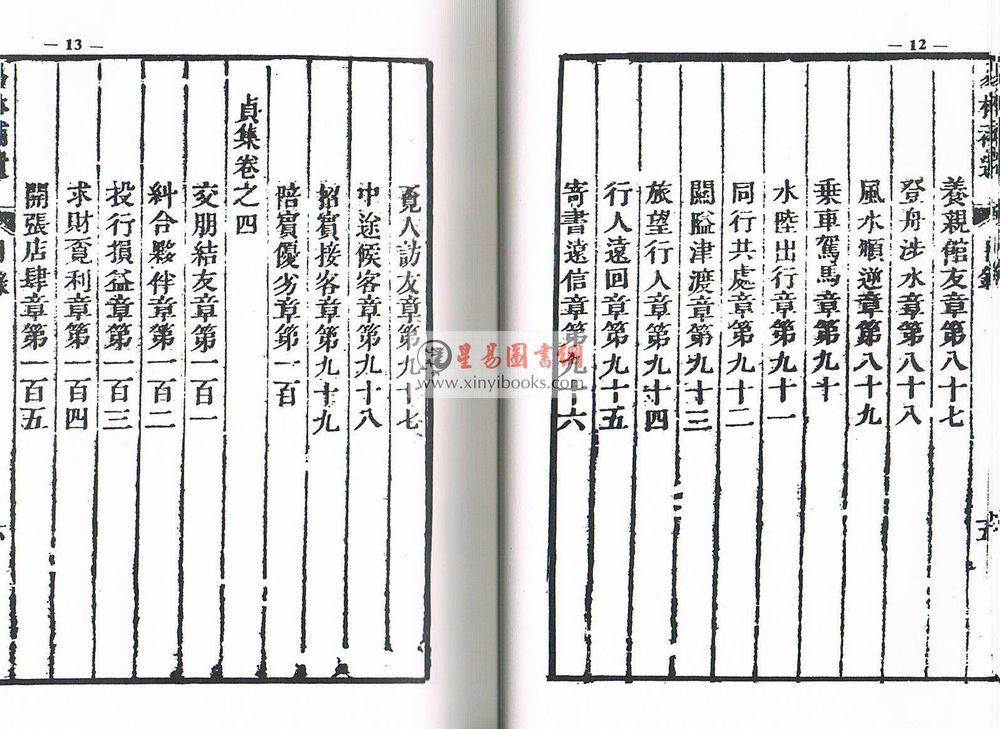 — 12 —
易林補遺
目錄
五
養親館友章第八十七
登舟涉水章第八十八
風水順逆章第八十九
乗車駕馬章第九十
水陸出行章第九十一
同行共處章第九十二
關隘津渡章第九十三
旅望行人章第九十四
行人遠回章第九十五
寄書遠信章第九十六
— 13 —
覓人訪友章第九十七
中途候客章第九十八
招賓接客章第九十九
陪賓優劣章第一百
貞集卷之四
交朋結友章第一百一
糾合夥伴章第一百二
投行損益章第一百三
求財覓利章第一百四
開張店肆章第一百五
林補遺
目錄
六
星易圖書網
www.xinyibooks.com